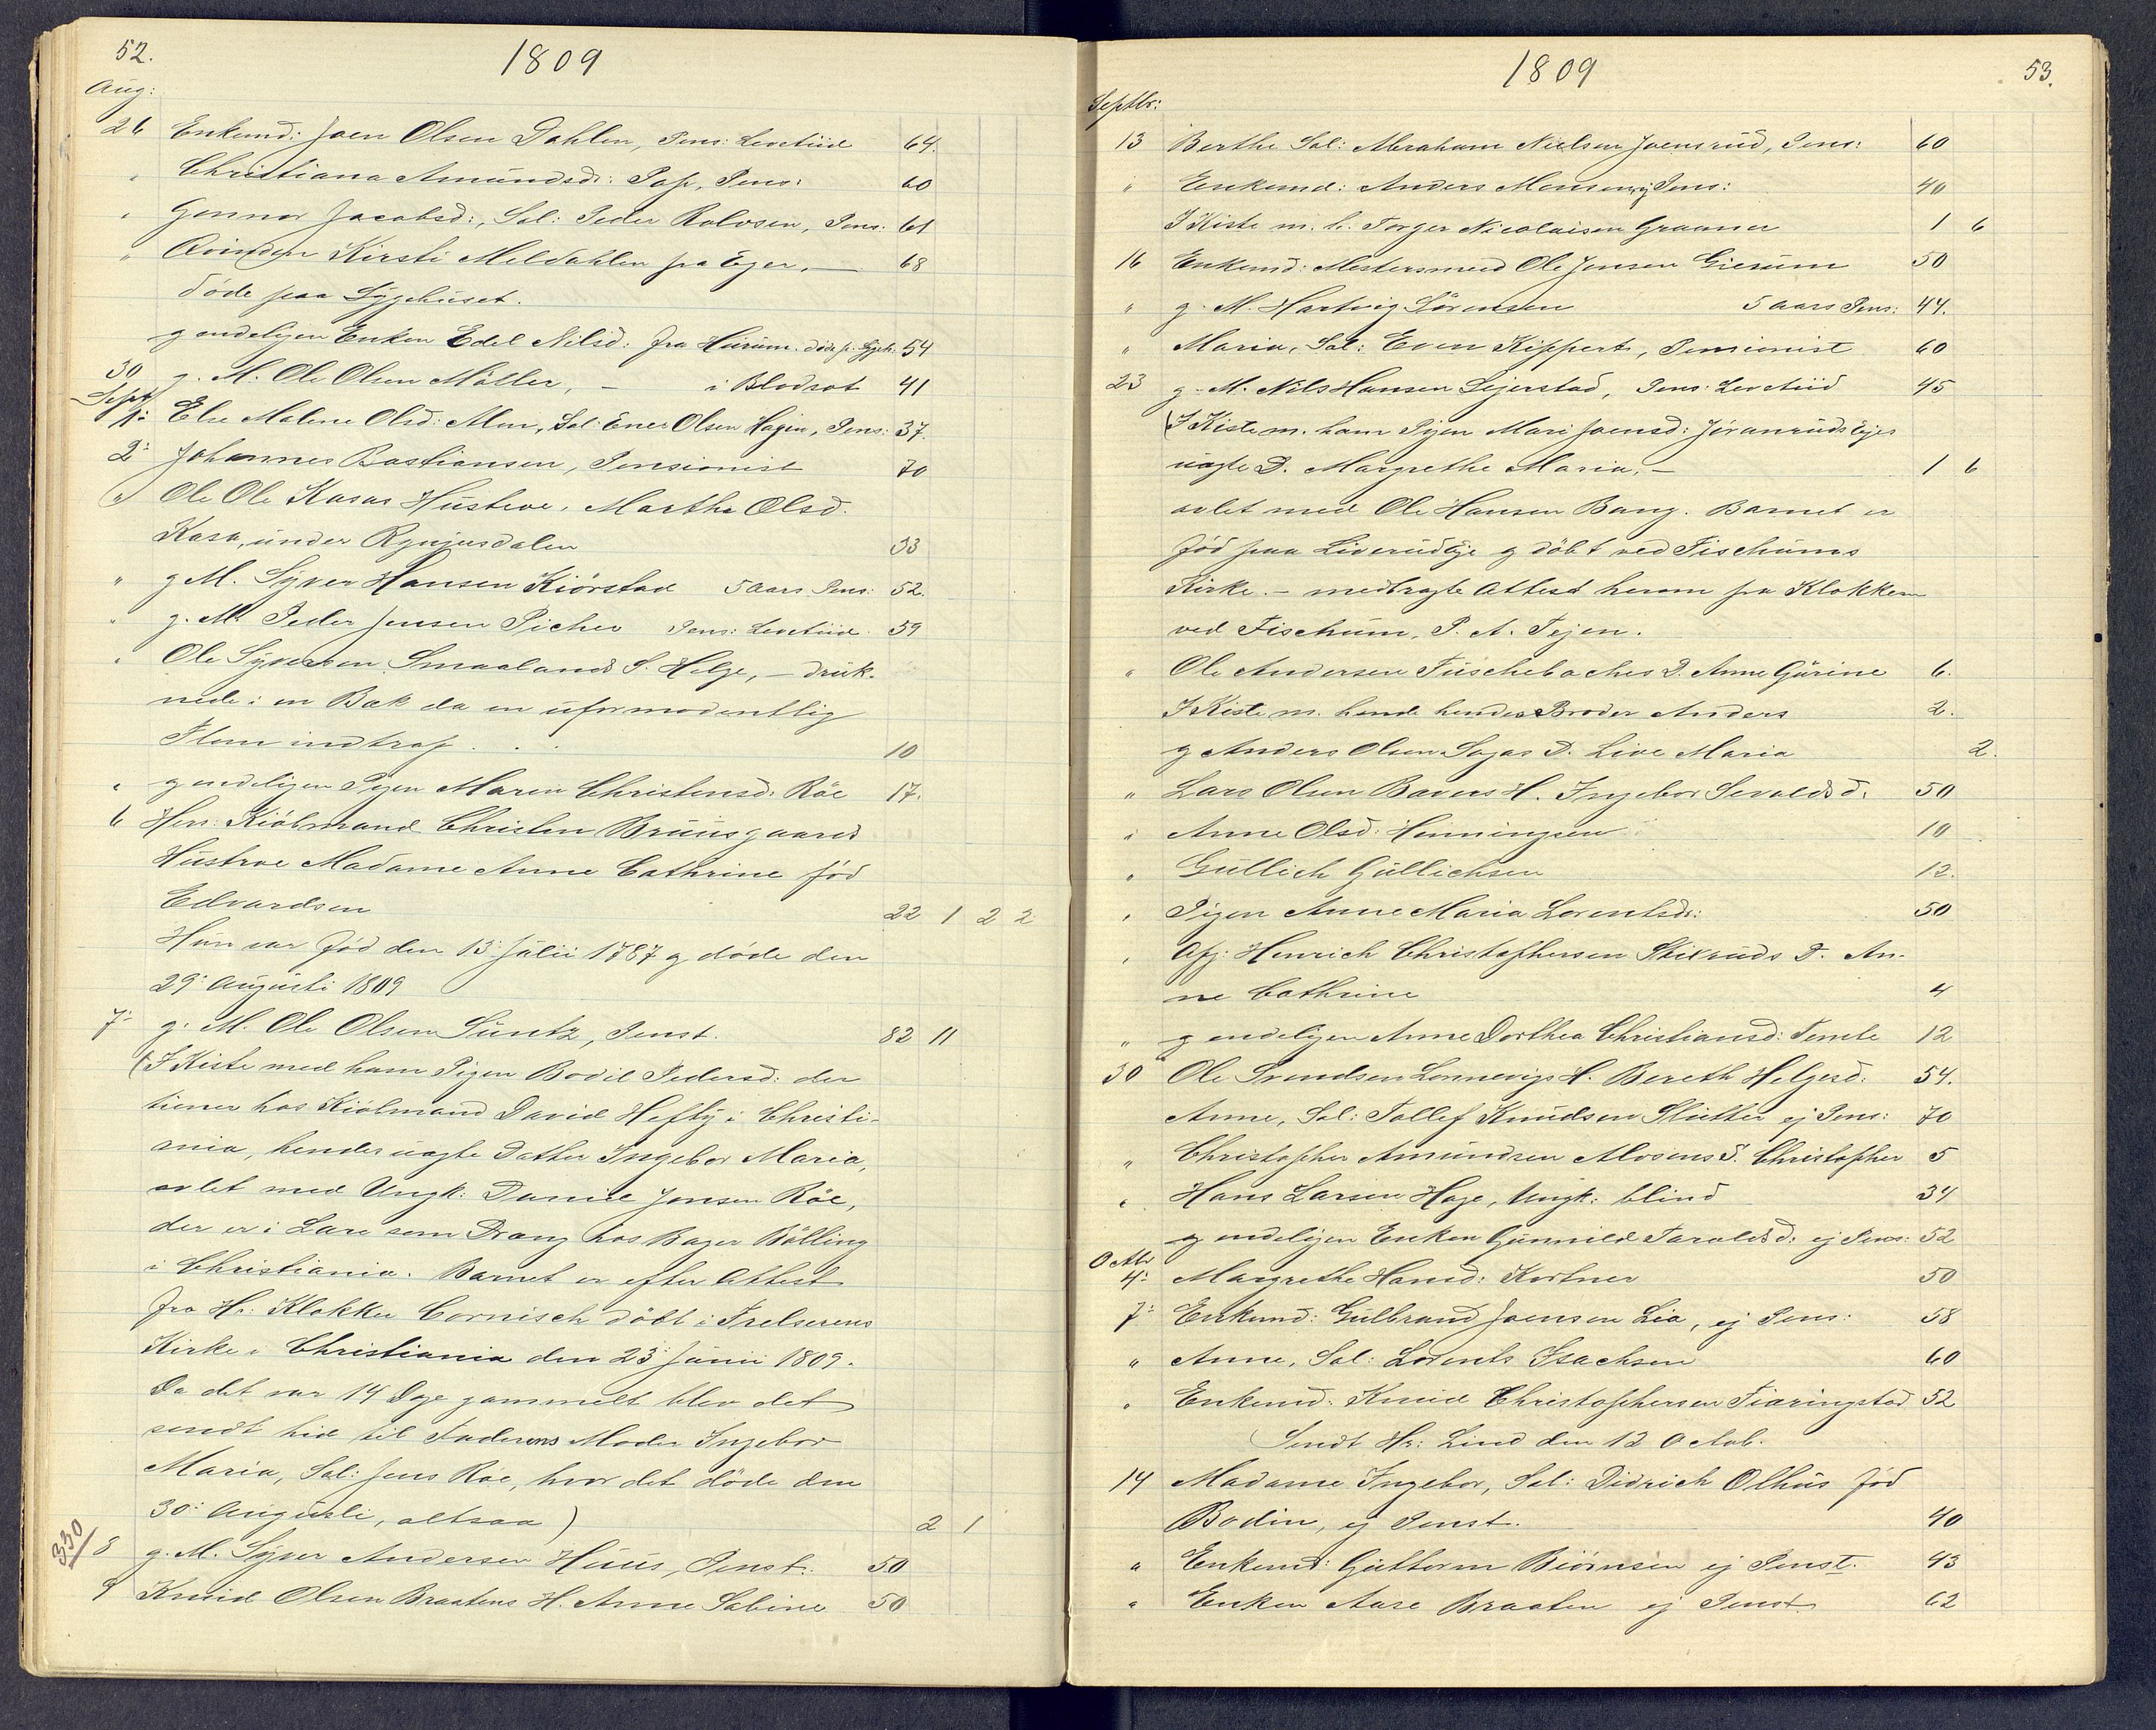 52.
1809
Aug:
26 Enkemd: Joen Olsen Dahlen, Pens: Levetiid 64.
" Christiana Amundsd: Pens: 60
" Gunnor Jacobsd:, Sal: Peder Rolvsen, Pens: 61
" Qvinden Kirsti Meldahlen fra Eger, — 68
døde paa Sygehuset.
g endeligen Enken Edel Nilsd: fra Hurum. døde p: Sygeh: 54
30 g. M. Ole Olsen Møller, — i Blodsot 41
Sept
1: Else Malene Olsd: Moen, Sal: Ener Olsen Hagen, Pens: 37.
2: Johannes Bastiansen, Pensionist 70
" Ole Ole Kasas Hustroe, Marthe Olsd.
Kasa, under 33
" g M. Syver Hansen Kiørstad 5 aars Pens: 52.
" g. M. Peder Jensen Picher Pens: Levetiid. 59
" Ole Syversen Smaalands S. Helge, — druk-
nede i en Bæk da en uformodentlig
Flom indtraf . . . 10
" g endeligen Pigen Maren Christensd: Røe 17.
6 Herr: Kiøbmand Christen Bruusgaards
Hustroe Madame Anne Cathrine fød
Edvardsen 22 1 2 2
Hun var fød den 13: Julii 1787 g døde den
29: Augusti 1809
7: g. M. Ole Olsen Suntz, Penst. 82 11
(I Kiste med ham Pigen Bodil Pedersd: der
tiener hos Kiøbmand David Hefty i Christi-
ania, hendes uægte Datter Ingebor Maria,
avlet med Ungk: Daniel Jensen Røe,
der er i Lære som Dreng hos Bager Bølling
i Christiania. Barnet er efter Attest
fra Hr: Klokker Cornisch døbt i Frelserens
Kirke i Christiania den 23: Junii 1809.
Da det var 14 Dage gammelt blev det
sendt hid til Faderens Moder Ingebor
Maria, Sal: Jens Røe, hvor det døde den
30: Augusti, altsaa) 2 1
330
8 g. M. Syver Andersen Huus, Penst: 50
9 Knud Olsen Braatens H. Anne Sabine 50
1809
53.
Septbr:
13 Berthe Sal: Abraham Nielsen Joensrud, Pens: 60
" Enkemd: Anders Monsen, ej Pens: 40
I Kiste m. h. Torger Nicolaisen Graaner 1 6
16 Enkemd: Mestersmed Ole Jensen Gierum 50
" g. M. Hartvig Sørensen 5 aars Pens: 44.
" Maria, Sal: Even Kippert, Pensionist 60
23 g. M. Nils Hansen Sejerstad, Pens: Levetiid 45
(I Kiste m. ham Pigen Mari Joensd: Jøranruds Ejes
uægte D. Margrethe Maria, — 1 6
avlet med Ole Hansen Bang. Barnet er
fød paa Liverudeje g døbt ved Fischums
Kirke. — medbragte Attest herom fra Klokkeren
ved Fischum, P. A. Tejen.
" Ole Andersen D. Anne Gurine 6.
I Kiste m. hende hendes Broder Anders 2.
g Anders Olsen Sagas D. Live Maria 2.
" Lars Olsen H. Ingebor Sevaldsd. 50
" Anne Olsd: Henningsen 10
" Gullich Gullichsen 12.
" Pigen Anne Maria Lorentsdr: 50
" Afg: Henrich Christophersen Stixruds D. An-
ne Cathrine 4
" g endeligen Anne Dorthea Christiansd: Temte 12
30 Ole Svendsen Lonnevigs H. Bereth Helgesd: 54.
Anne, Sal: Tollef Knudsen Slutter ej Pens: 70
" Christopher Amundsen Alvsens S. Christopher 5
" Hans Larsen Hage, Ungk: blind 34
g endeligen Enken Gunnild Taraldsd: ej Pens: 52
Octbr
4: Margrethe Hansd: Kortner 50
7: Enkemd: Gulbrand Joensen Lia, ej Pens: 58
" Anne, Sal: Lorents Isachsen 60
" Enkemd: Knud Christophersen Tiaringstad 52
Sendt Hr: Lind den 12 Octob.
14 Madame Ingebor, Sal: Didrich Olhus fød
Bodin, ej Penst. 40
" Enkemd: Guttorm Biørnsen ej Penst. 43
" Enken Aase Braaten ej Penst. 62